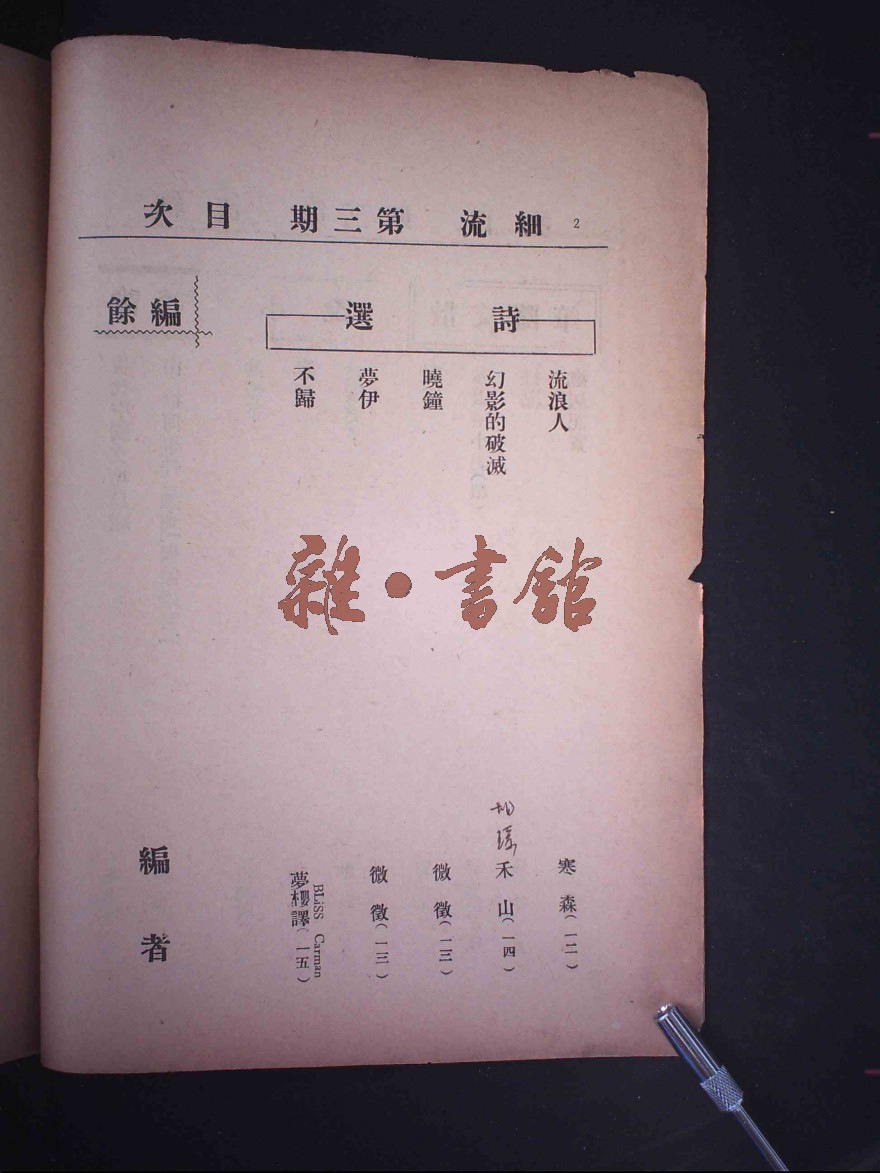 2
細流 第三期 目次
詩選
流浪人 寒森(一二)
幻影的破滅 禾山(一四)
曉鐘 微徵(一三)
夢伊 微徵(一三)
不歸 BLiSS Carman
夢櫻譯(一五)
編餘 編者
雜·書館